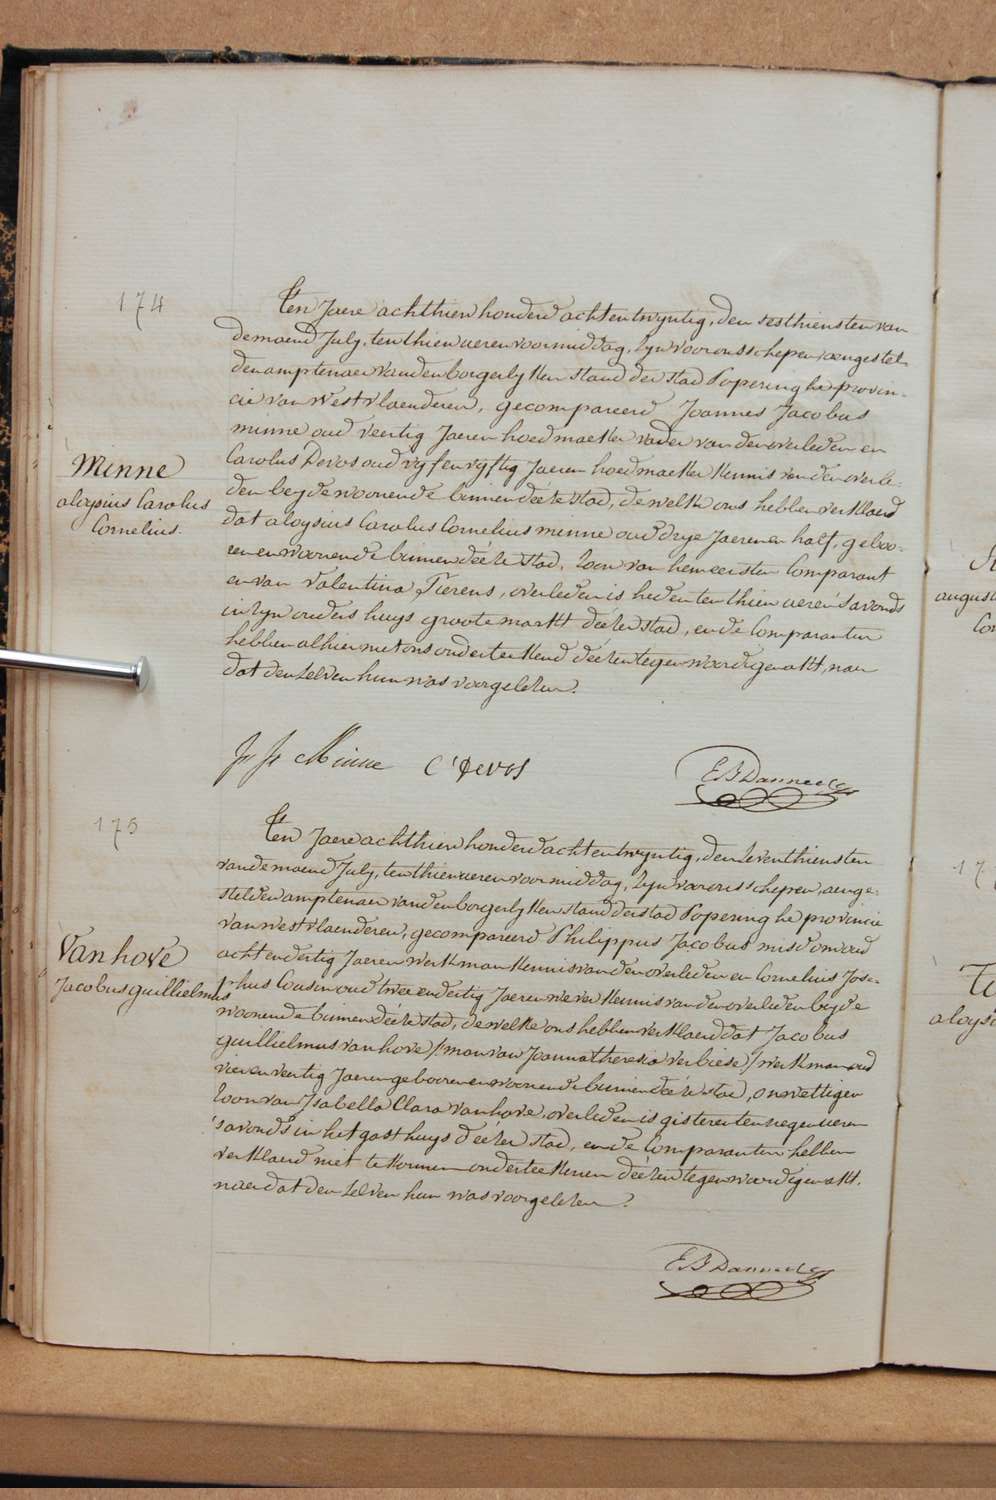 174
Ten Jaere achtthien honderd achtentwyntig, den sesthiensten van
de maend July, ten thien ueren voormiddag, zyn voor ons schepen aengestel-
den amptenaer van den borgerlyken stand der stad Poperinghe provin-
cie van Westvlaenderen, gecompareerd Joannes Jacobus
minne oud veertig Jaeren hoedmaeker vader van den overleden en
Carolus Devos oud vyfenvyftig Jaeren hoedmaeker kennis van den overle-
den beyde woonende binnen deéze stad, de welke ons hebben verklaerd
dat aloysius Carolus Cornelius minne oud drye Jaeren en half, geboo-
ren en woonende binnen deéze stad, zoon van hem eersten Comparant
en van Valentina Tierens, overleden is heden ten thien ueren s'avonds
in zyn ouders huys groote markt deézer stad, en de Comparanten
hebben alhier met ons onderteekend deézen tegenwoordigen akt, naer
dat den zelven hun was voorgelezen.
Minne
aloysius Carolus
Cornelius.
J J Minne C Devos E B Danneel
175
Ten Jaere achtthien honderd achtentwyntig, den zeventhiensten
van de maend July, ten thien ueren voormiddag, zyn voor ons schepen, aenge-
stelden amptenaer van den borgerlyken stand der stad Poperinghe provincie
van Westvlaenderen, gecompareerd Philippus Jacobus misdom oud
achtendertig Jaeren werkman kennis van den overleden en Cornelius Jose-
phus Cousen oud tweeendertig Jaeren wever kennis van den overleden beyde
woonende binnen deéze stad, de welke ons hebben verklaerd dat Jacobus
guillielmus vanhove /:man van Joanna theresia verbiese/ werkman oud
vierenveertig Jaeren gebooren en woonende binnen deéze stad, onwettigen
zoon van Isabella Clara vanhove, overleden is gisteren ten negen ueren
s'avonds in het gasthuys deézer stad, en de Comparanten hebben
verklaerd niet te konnen onderteekenen deézen tegenwoordigen akt.
naer dat den zelven hun was voorgelezen.
Vanhove
Jacobus guillielmus
E B Danneel
augus
Co
17
aloys